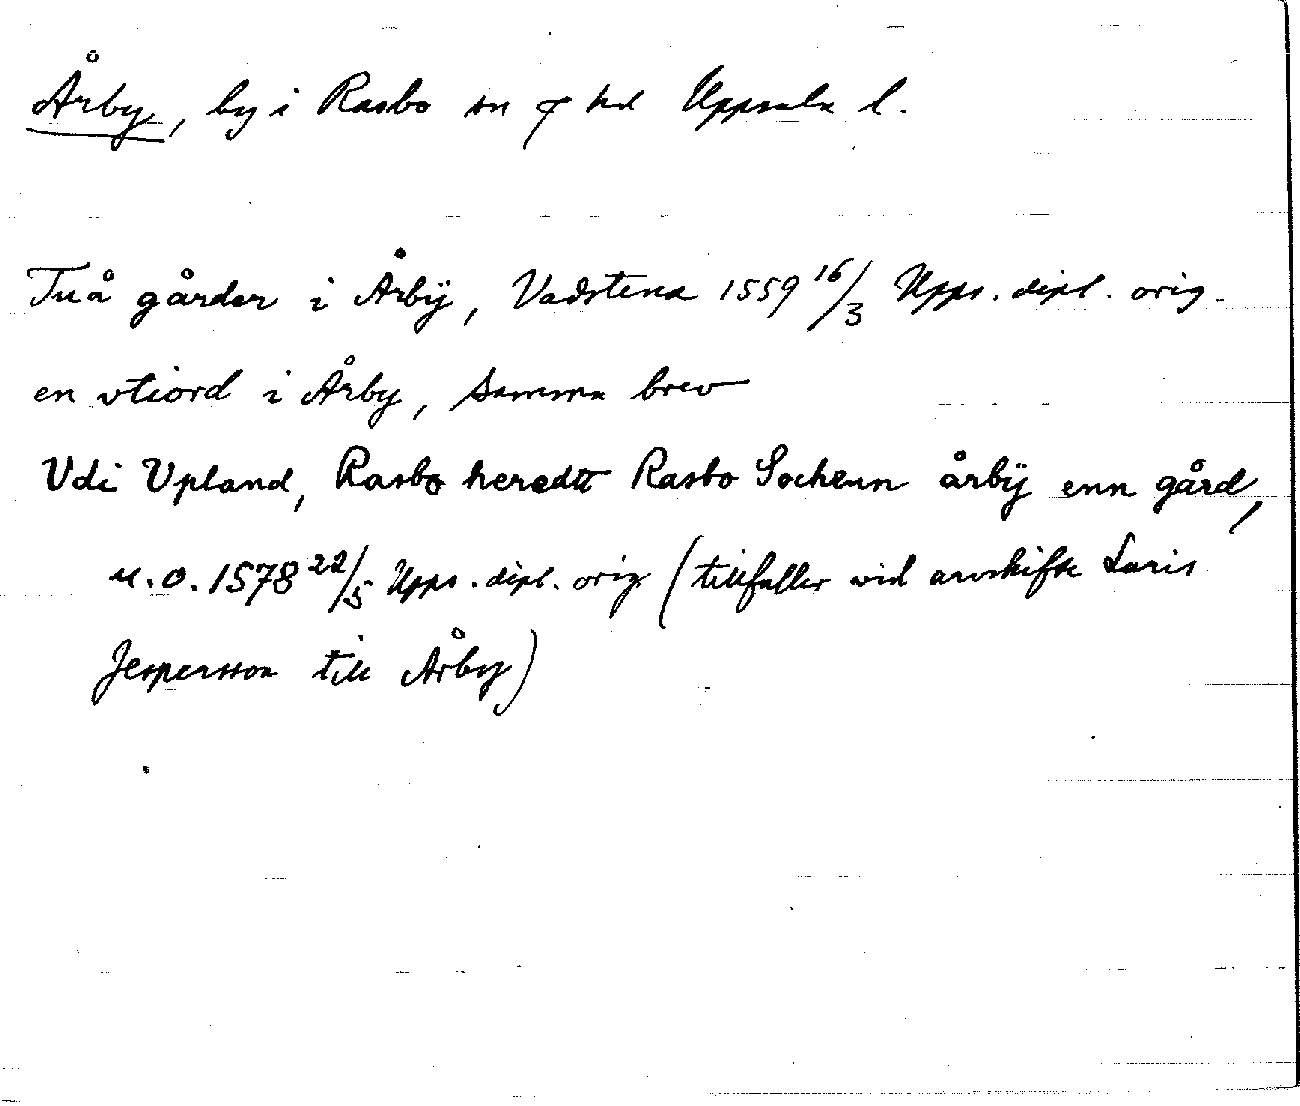 Årby, by i Rasbo sn o hd Uppsala l.
Tuå gårder i Årbÿ, Vadstena 1559 16/3 Upps. dipl. orig.
en vtiord i Årby, samma brev
Vdi Vpland, Rasbo heredtt Rasbo Sochenn årbÿ enn gård,
u.o. 1578 22/5 Upps. dipl. orig (tillfaller vid arvskifte Laris
Jespersson till Årby)